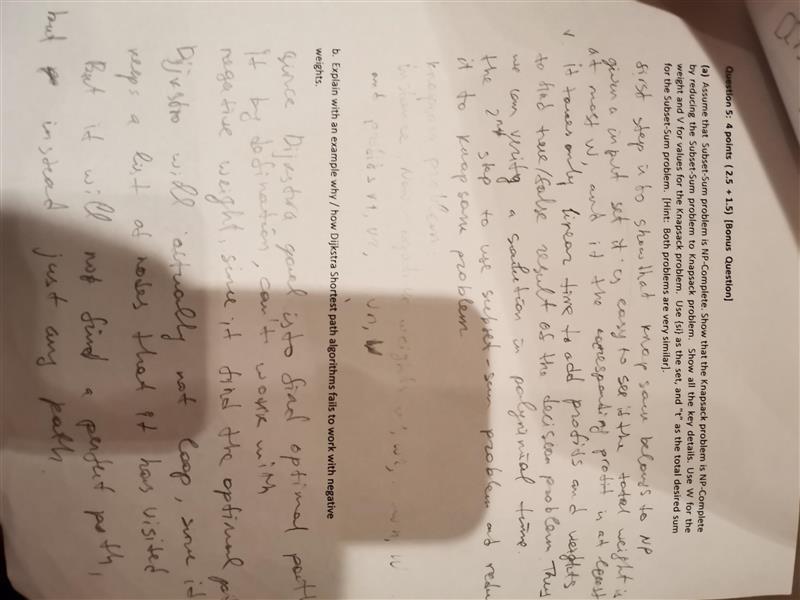 Question 5: 4 points ( 2.5 + 1.5) [Bonus Question]
(a) Assume that Subset-Sum problem is NP-Complete. Show that the Knapsack problem is NP-Complete
by reducing the Subset-Sum problem to Knapsack problem. Show all the key details. Use W for the
weight and V for values for the Knapsack problem. Use {si} as the set, and "t" as the total desired sum
for the Subset-Sum problem. [Hint: Both problems are very similar].
first step is to show that knap sack belongs to NP
given a input set it is easy to see if the total weight is
at most W, and if the corresponding profit is at least
v. it takes only linear time to add profits and weights
to find true/false result of the decision problem Thus
we can verify a solution in polynimial time.
the 2nd step to use subset-sum problem and redu
it to knapsack problem
knapsack problem:
instance: Non-negative weights w1, w2, wn, W
and profits v1, v2, vn, V
b. Explain with an example why / how Dijkstra Shortest path algorithms fails to work with negative
weights.
since Dijkstra goal is to find optimal path
it by defination, can't work with
negative weight, since it find the optimal pa
Dijkstra will actually not loop, since it
keeps a list of nodes that it has visited
But it will not find a perfect path,
but instead just any path